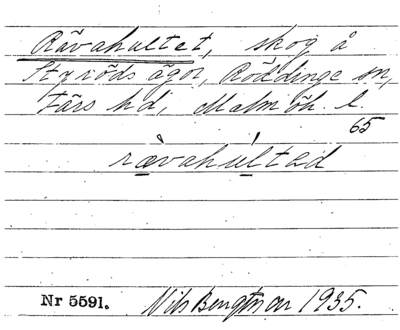 Rävahultet, skog å
Styriöds ägor, Röddinge sn,
Färs hd, Malmöh. l.
65
rævahultəd
Nr 5591. Nils Bengtsson 1935.